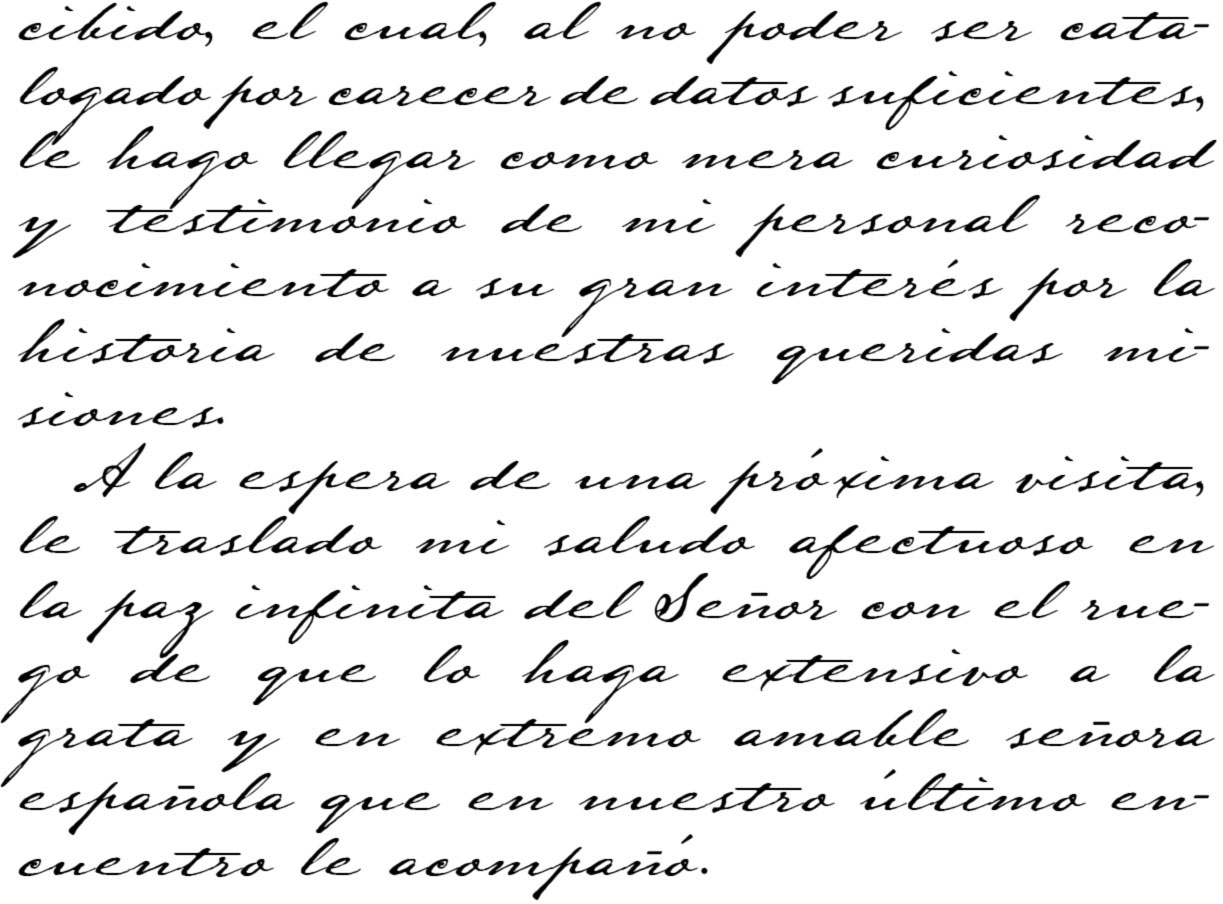 cibido, el cual, al no poder ser cata-
logado por carecer de datos suficientes,
le hago llegar como mera curiosidad
y testimonio de mi personal reco-
nocimiento a su gran interés por la
historia de nuestras queridas mi-
siones.
A la espera de una próxima visita,
le traslado mi saludo afectuoso en
la paz infinita del Señor con el rue-
go de que lo haga extensivo a la
grata y en extremo amable señora
española que en nuestro último en-
cuentro le acompañó.